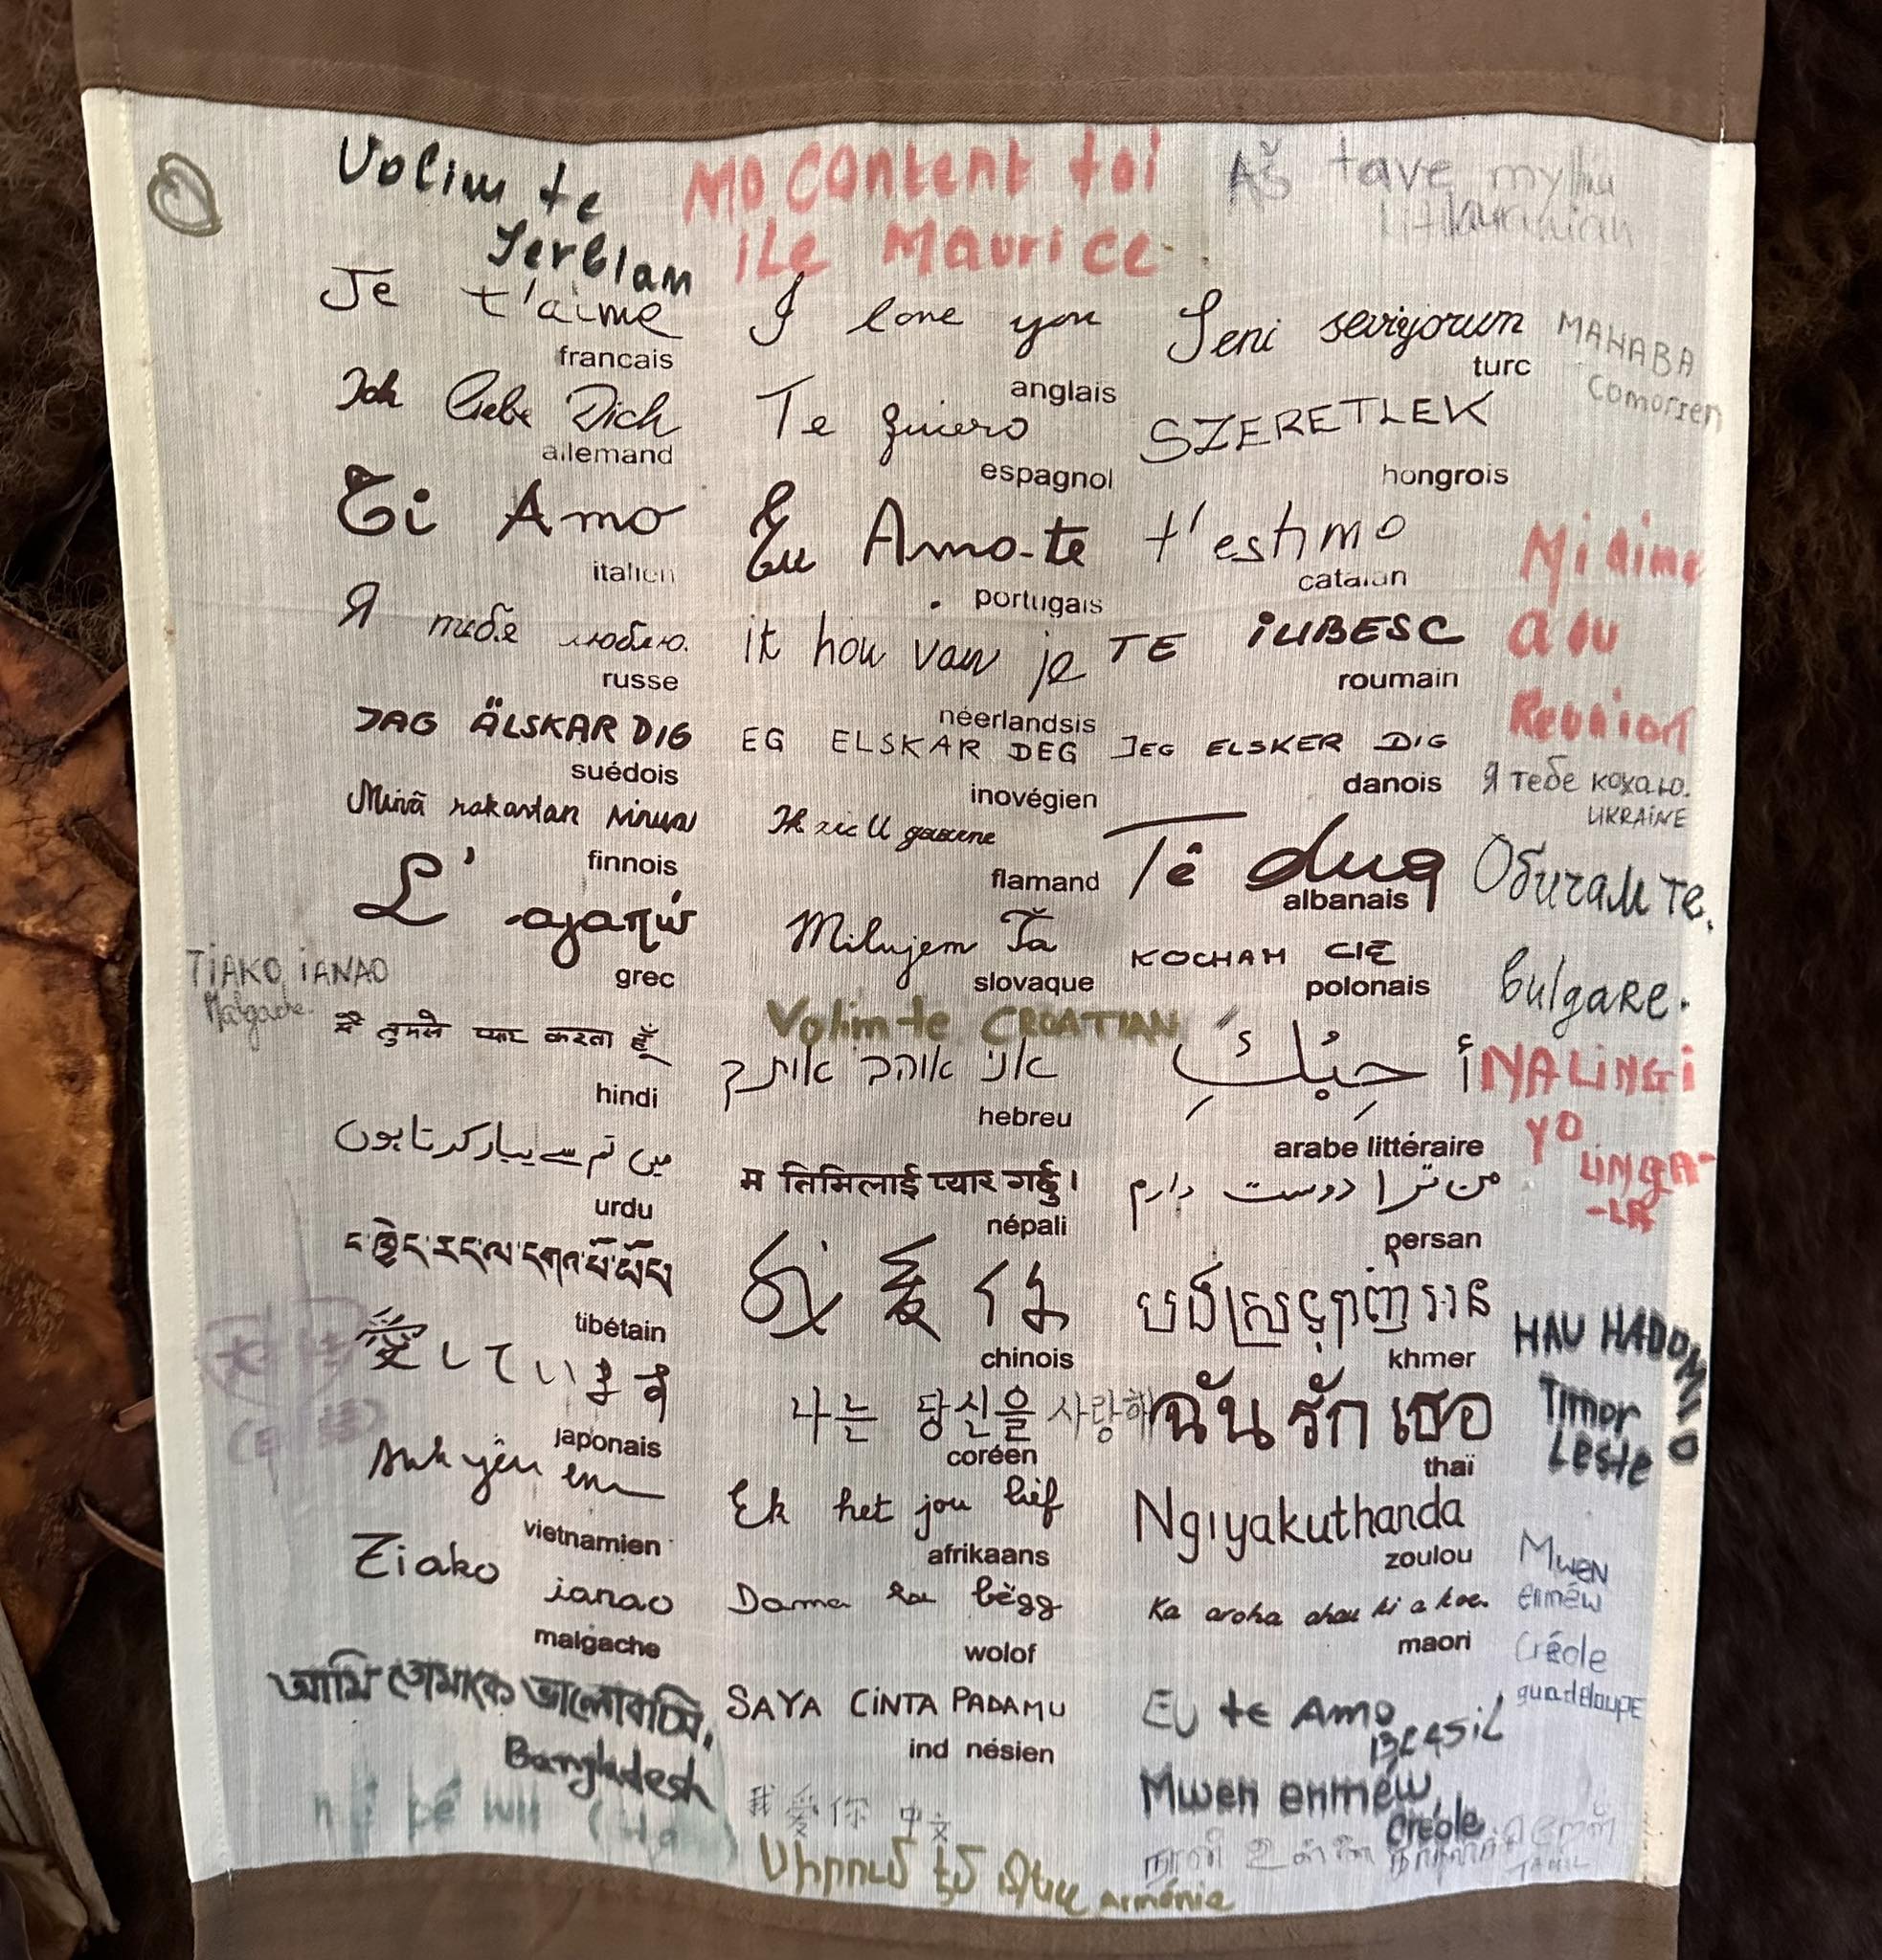 Volim te
Serbian
MO CONTENT toi
iLe MAURICE
Aš tave myliu
Je t'aime
francais
I love you
anglais
Seni seviyorum
turc
MAHABA
Comorien
Ich liebe Dich
allemand
Te quiero
espagnol
SZERETLEK
hongrois
Ti Amo
italien
Eu Amo-te
portugais
t'estimo
catalan
Mi aime
a ou
Reunion
Я тебя люблю.
russe
ik hou van je
néerlandsis
TE iUBESC
roumain
JAG ÄLSKAR DIG
suédois
EG ELSKAR DEG
inovégien
JEG ELSKER DIG
danois
Я тебе кохаю.
UKRAiNE
Minä rakastan sinua
finnois
flamand
Të dua
albanais
Обичам те.
bulgare.
S' αγαπώ
grec
Milujem Ťa
slovaque
KOCHAM CIĘ
polonais
TiAKO iANAO
Malgache.
Volim te CROATIAN
मैं तुमसे प्यार करता हूँ
hindi
אני אוהב אותך
hebreu
أُحِبُّكِ
arabe littéraire
NALiNGi
YO
LiNgA-
-LA
میں تم سے پیار کرتا ہوں
urdu
म तिमिलाई प्यार गर्छु।
népali
من ترا دوست دارم
persan
tibétain
我 爱 你
chinois
បងស្រទ្បាញ់អូន
khmer
HAU HADOMI O
Timor
Leste
愛しています
japonais
나는 당신을 사랑해
coréen
ฉัน รัก เธอ
thaï
Anh yêu em
vietnamien
Ek het jou lief
afrikaans
Ngiyakuthanda
zoulou
Mwen
enméw
Créole
guadeloupE
Tiako ianao
malgache
Dama la bëgg
wolof
Ka aroha ahau ki a koe.
maori
আমি তোমাকে ভালোবাসি,
Bangladesh
SAYA CiNTA PADAMU
ind nésien
Eu te Amo
BrASiL
Mwen enméw,
Créole
我 愛 你 中文
TAMiL
arménie